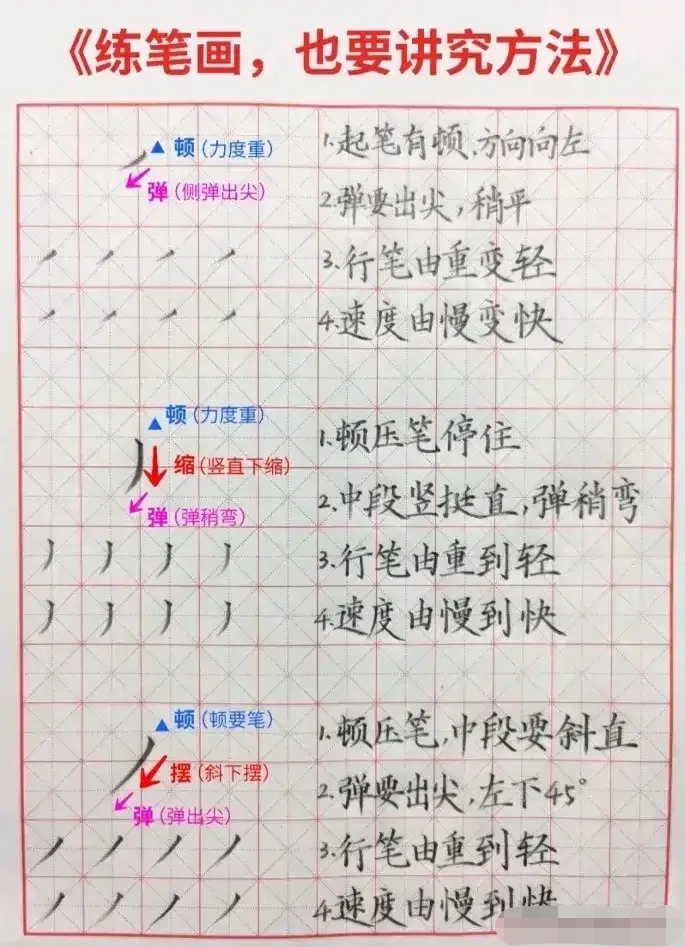 《练笔画，也要讲究方法》
顿(力度重)
弹(侧弹出尖)
1.起笔有顿,方向向左
2.弹要出尖,稍平
3.行笔由重变轻
4.速度由慢变快
顿(力度重)
缩(竖直下缩)
弹(弹稍弯)
1.顿压笔停住
2.中段竖挺直,弹稍弯
3.行笔由重到轻
4.速度由慢到快
顿(顿要笔)
摆(斜下摆)
弹(弹出尖)
1.顿压笔,中段要斜直
2.弹要出尖,左下45°
3.行笔由重到轻
4.速度由慢到快